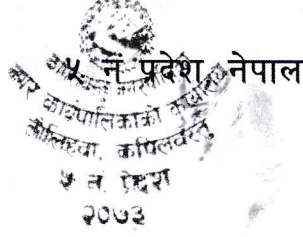 ५ नं प्रदेश, नेपाल
नगर कार्यपालिकाको कार्यालय
तौलिहवा, कपिलवस्तु
५ नं. प्रदेश
२०७३